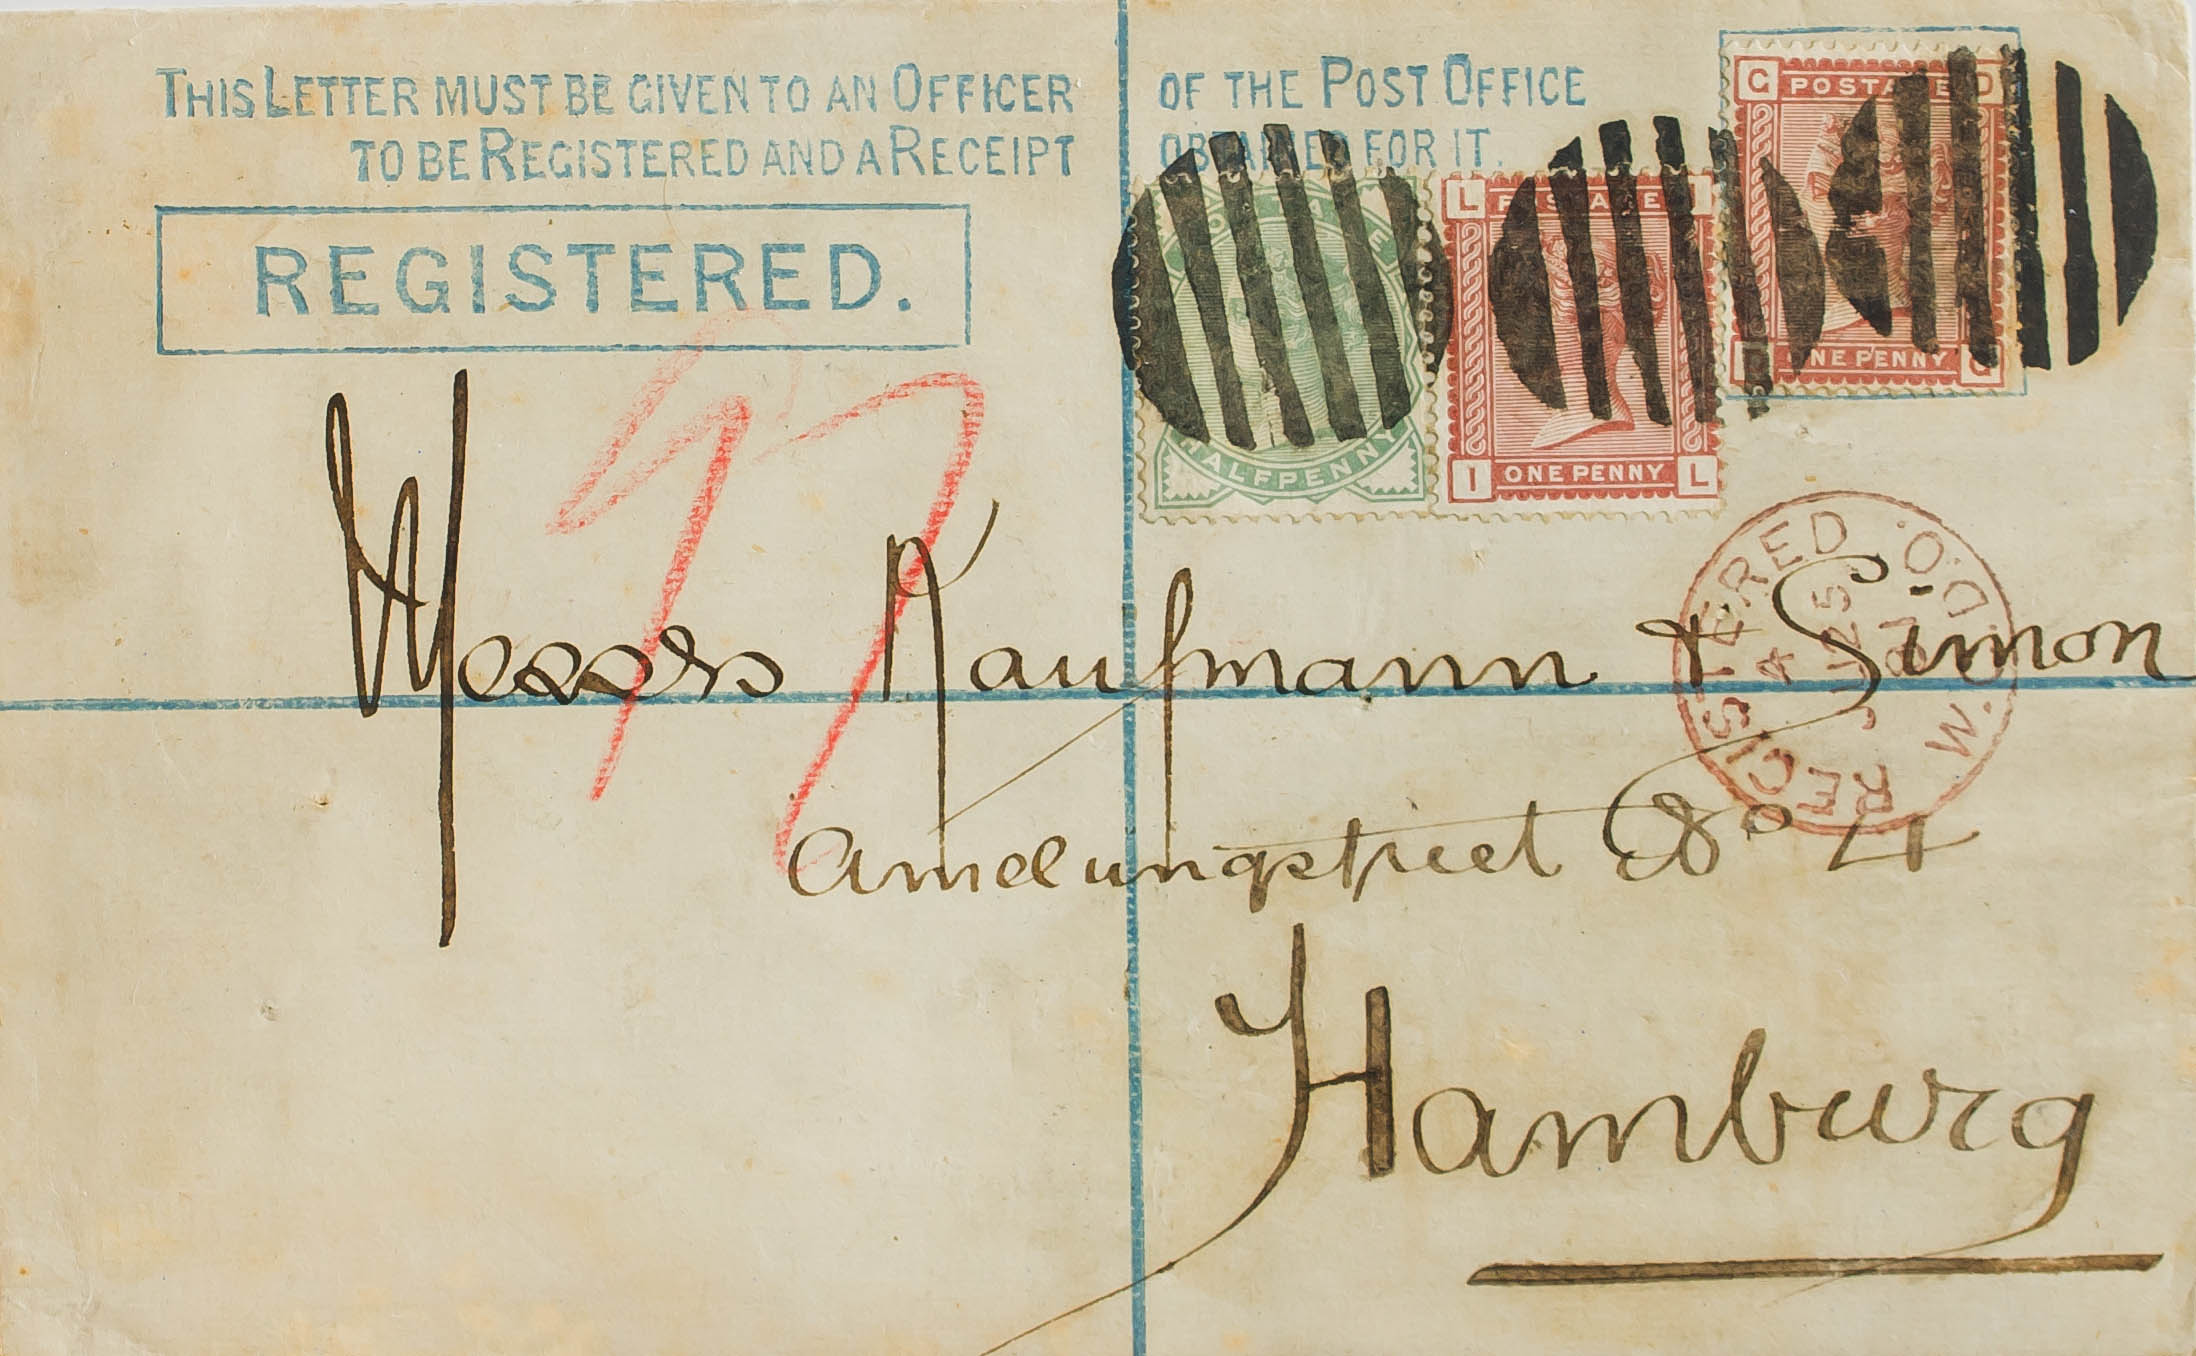 THIS LETTER MUST BE GIVEN TO AN OFFICER OF THE POST OFFICE
TO BE REGISTERED AND A RECEIPT OBTAINED FOR IT.
REGISTERED.
HALFPENNY
L POSTAGE I
I ONE PENNY L
G POSTAGE D
D ONE PENNY G
REGISTERED W.C.D.O.
4 JU 25
Messrs Kaufmann & Simon
Amelungstreet No 4
Hamburg